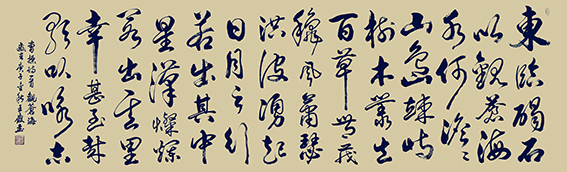 東臨碣石
以觀蒼海
水何澹〻
山島竦峙
樹木叢生
百草豐茂
穐風蕭瑟
洪波湧起
日月之行
若出其中
星漢燦爛
若出其里
幸甚至哉
歌以咏志
曹操詩首 觀蒼海
庚子